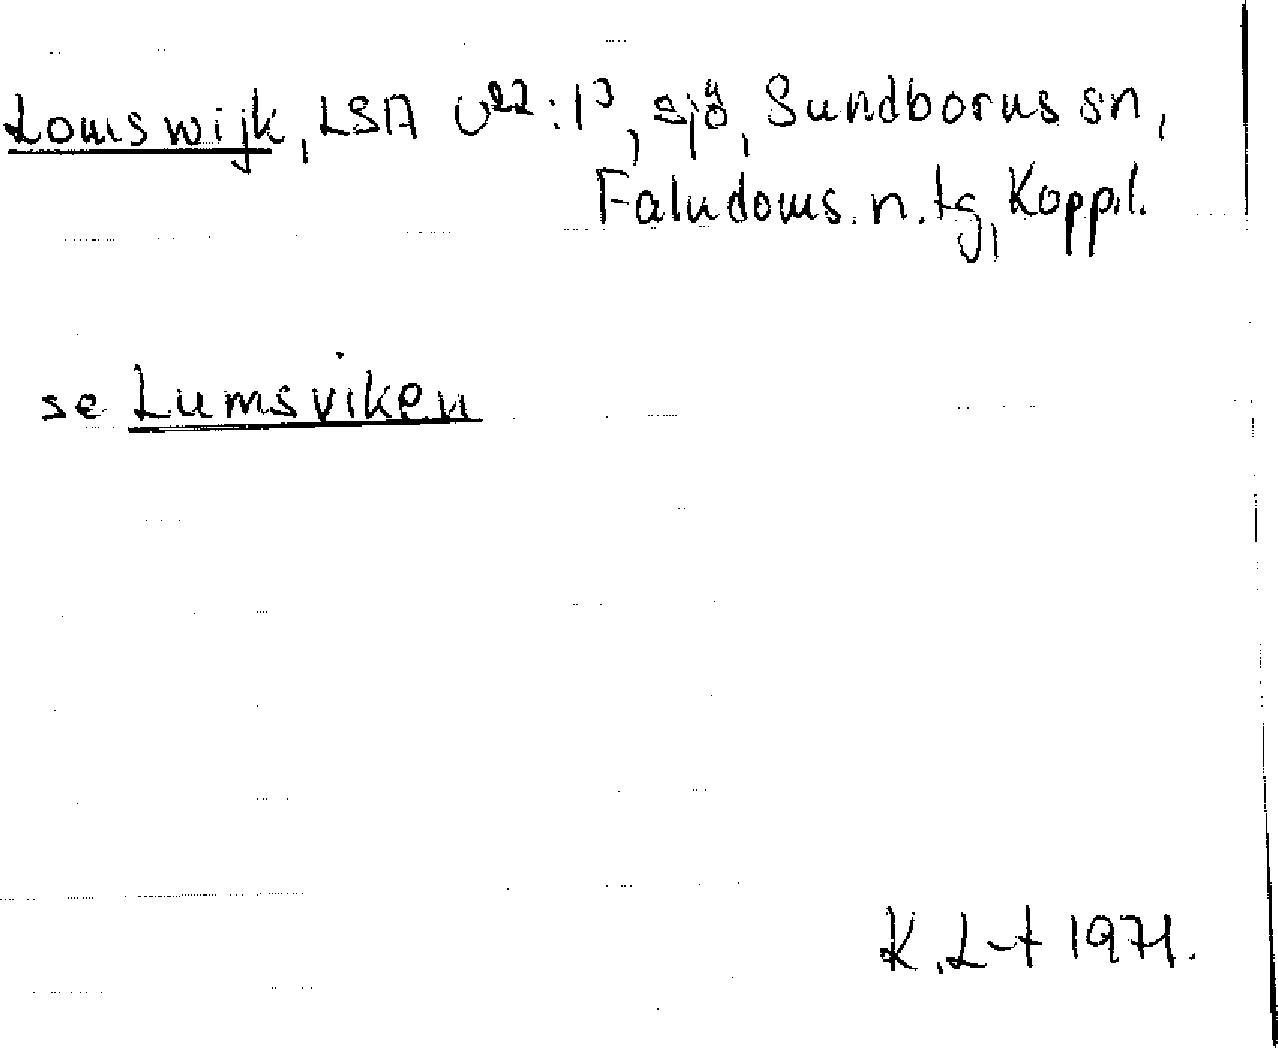 Lomswijk, LSA U22:13, sjö, Sundborns sn,
Faludoms. n. tg, Koppl.
se Lumsviken
K. L-t 1971.